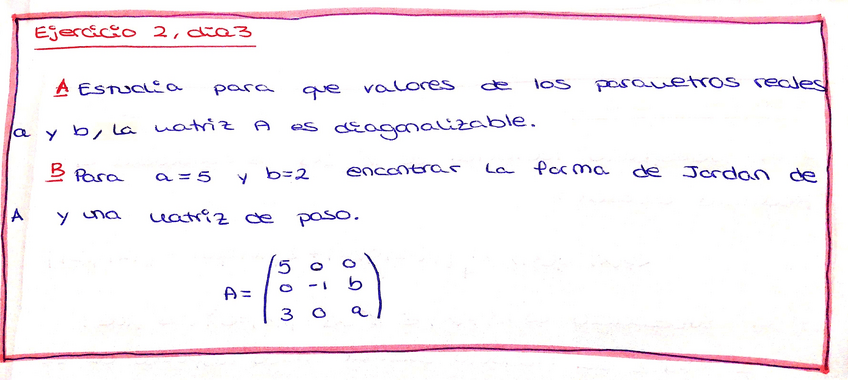 Ejercicio 2, día 3
A Estudia para que valores de los parametros reales
a y b, la matriz A es diagonalizable.
B Para a=5 y b=2 encontrar la forma de Jordan de
A y una matriz de paso.
5 0 0
A= 0 -1 b
3 0 a